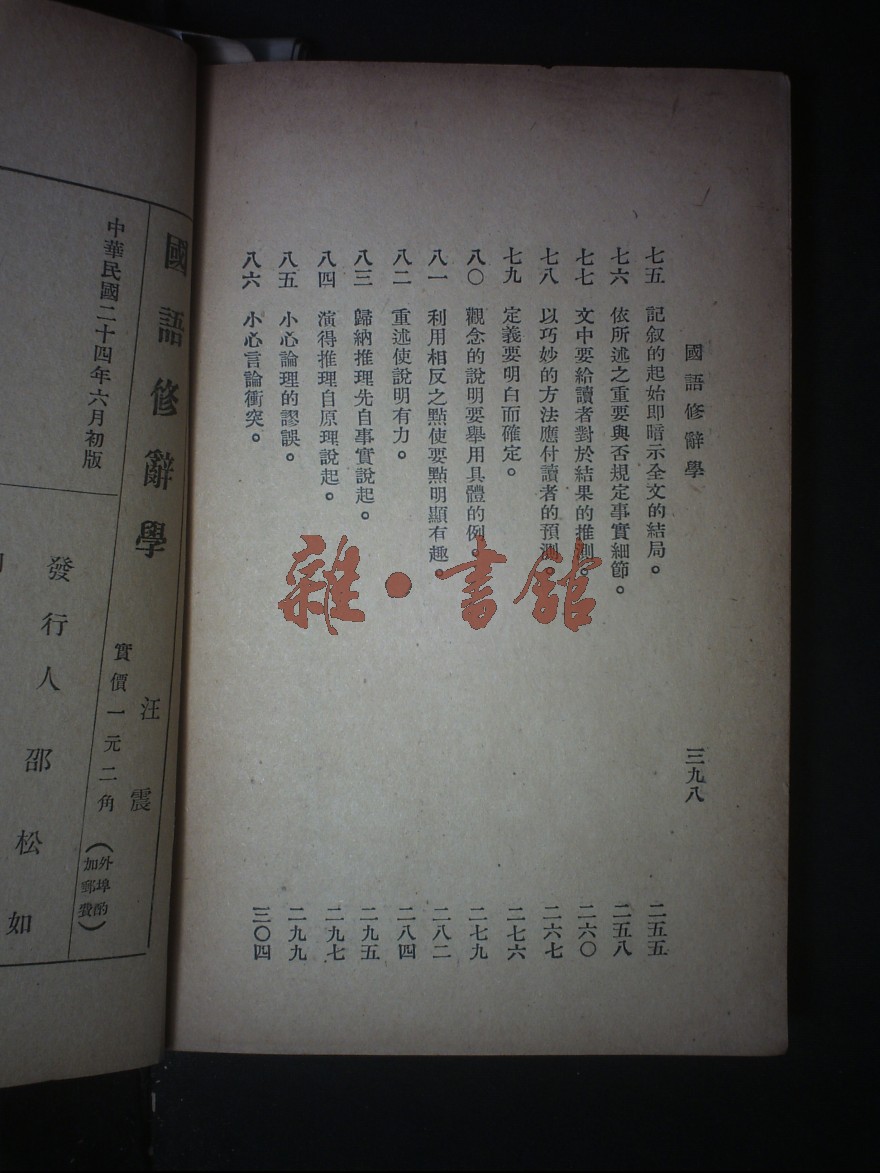 國語修辭學
三九八
七五 記叙的起始即暗示全文的結局。 二五五
七六 依所述之重要與否規定事實細節。 二五八
七七 文中要給讀者對於結果的推測。 二六〇
七八 以巧妙的方法應付讀者的預測。 二六七
七九 定義要明白而確定。 二七六
八〇 觀念的說明要舉用具體的例。 二七九
八一 利用相反之點使要點明顯有趣。 二八二
八二 重述使說明有力。 二八四
八三 歸納推理先自事實說起。 二九五
八四 演得推理自原理說起。 二九七
八五 小心論理的謬誤。 二九九
八六 小心言論衝突。 三〇四
雜·書館
國語修辭學
汪震
中華民國二十四年六月初版
實價一元二角
(外埠酌
加郵費)
發行人 邵松如